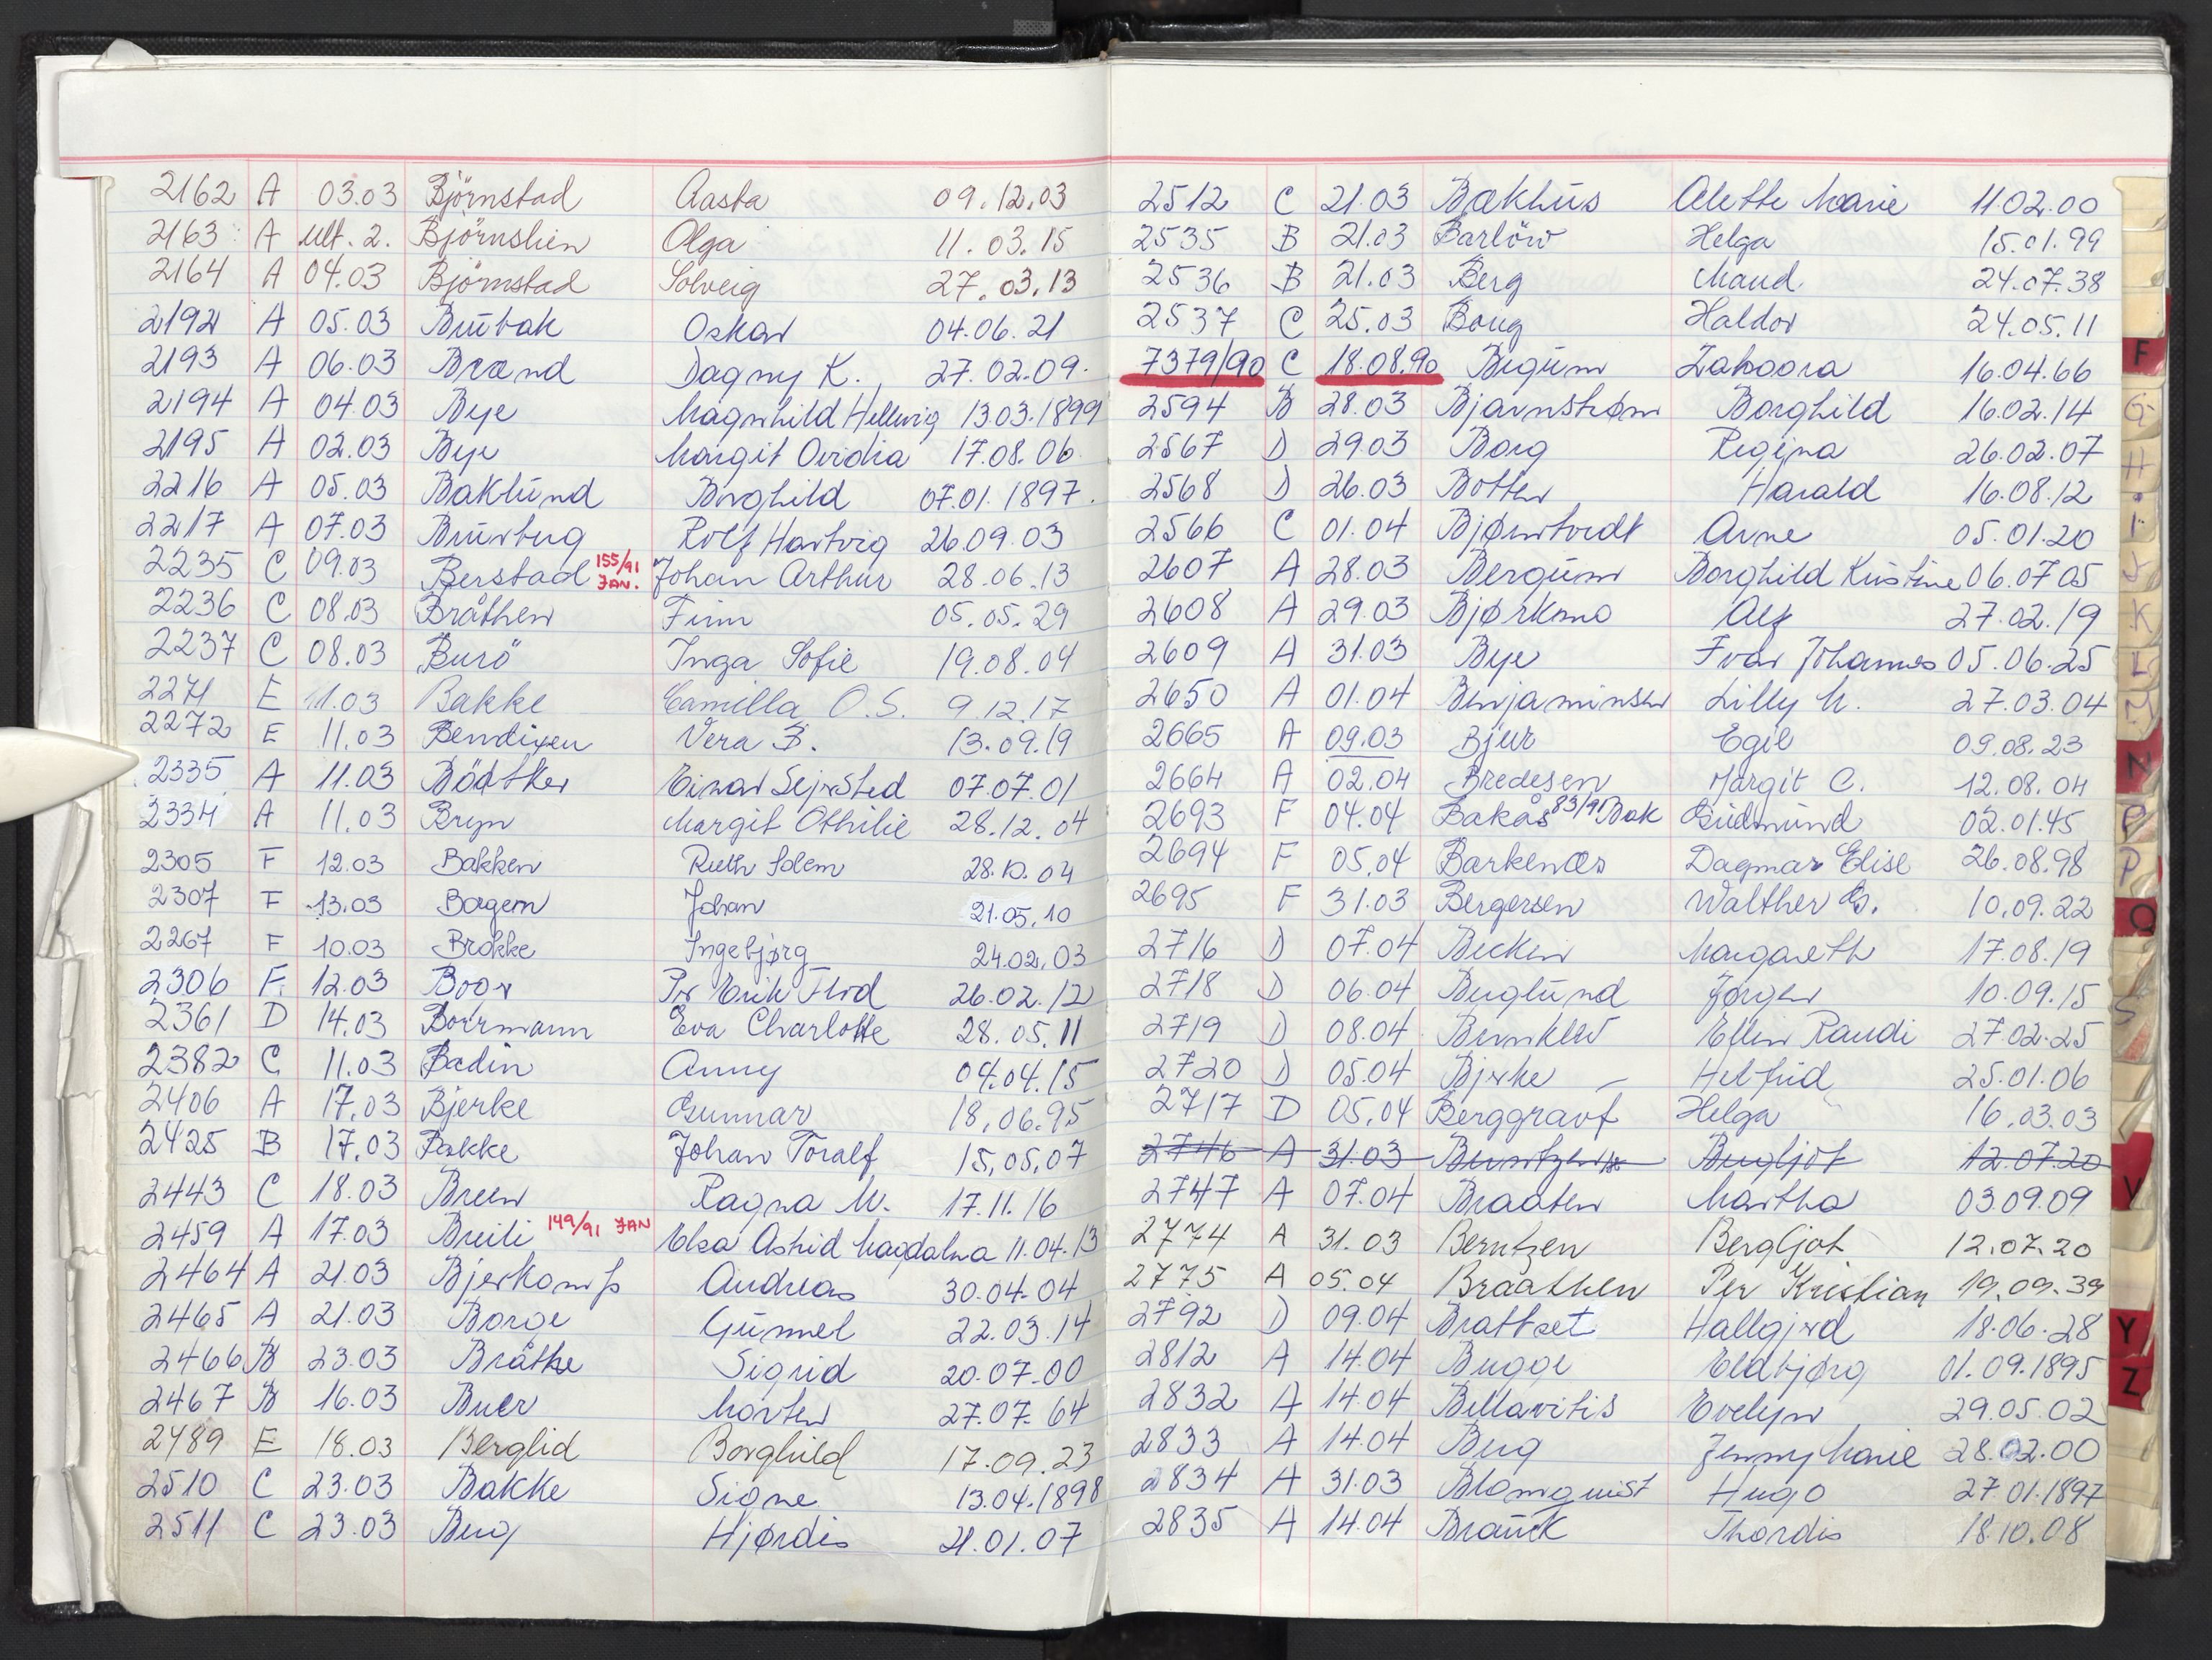 2162 A 03.03 Björnstad Aasta 09.12.03
2163 A ult. 2. Björnslien Olga 11.03.15
2164 A 04.03 Björnstad Solveig 27.03.13
2192 A 05.03 Brubak Oskar 04.06.21
2193 A 06.03 Brænd Dagny K. 27.02.09.
2194 A 04.03 Bye Magnhild Hellvig 13.03.1899
2195 A 02.03 Bye Margit Ovidia 17.08.06
2216 A 05.03 Baklund Borghild 07.01.1897.
2217 A 07.03 Rolf Hartvig 26.09.03
2235 C 09.03 Berstad 155/91 JAN. Johan Arthur 28.06.13
2236 C 08.03 Bråthen Finn 05.05.29
2237 C 08.03 Burö Inga Sofie 19.08.04
2271 E 11.03 Bakke Camilla O.S. 9.12.17
2272 E 11.03 Bendixen Vera B. 13.09.19
2335 A 11.03 Bödtker Einar Sejrsted 07.07.01
2334 A 11.03 Bryn Margit Othilie 28.12.04
2305 F 12.03 Bakken Ruth Solem 28.10.04
2307 F 13.03 Bagem Johan 21.05.10
2267 F 10.03 Brokke Ingebjørg 24.02.03
2306 F. 12.03 Boor Per Erik Flod 26.02.12
2361 D 14.03 Borrmann Eva Charlotte 28.05.11
2382 C 11.03 Badin Anny 04.04.15
2406 A 17.03 Bjerke Gunnar 18.06.95
2425 B 17.03 Bakke Johan Toralf 15.05.07
2443 C 18.03 Breen Ragna M. 17.11.16
2459 A 17.03 Breili 149/91 JAN Elsa Astrid Magdalena 11.04.13
2464 A 21.03 Bjerkamp Andreas 30.04.04
2465 A 21.03 Borge Gunnel 22.03.14
2466 B 23.03 Bråthe Sigrid 20.07.00
2467 B 16.03 Buer Morten 27.07.64
2489 E 18.03 Berglid Borghild 17.09.23
2510 C 23.03 Bakke Signe 13.04.1898
2511 C 23.03 Berg Hjørdis 21.01.07
2512 C 21.03 Bakhus Alette Marie 11.02.00
2535 B 21.03 Barlöw Helga 15.01.99
2536 B 21.03 Berg Maud. 24.07.38
2537 C 25.03 Boug Haldor 24.05.11
7379/90 C 18.08.90 Begum Zahoora 16.04.66
2594 B 28.03 Bjarnstrøm Borghild 16.02.14
2567 D 29.03 Borg Regina 26.02.07
2568 D 26.03 Botten Harald 16.08.12
2566 C 01.04 Bjørntvedt Arne 05.01.20
2607 A 28.03 Bergum Borghild Kristine 06.07.05
2608 A 29.03 Bjørkmo Alf 27.02.19
2609 A 31.03 Bye Ivar Johannes 05.06.25
2650 A 01.04 Benjaminsen Lilly M. 27.03.04
2665 A 09.03 Bjur Egil 09.08.23
2664 A 02.04 Bredesen Margit C. 12.08.04
2693 F 04.04 Bakås Bak Gudmund 02.01.45
2694 F 05.04 Barkenæs Dagmar Elise 26.08.98
2695 F 31.03 Bergersen Walther G. 10.09.22
2716 D 07.04 Becken Margareth 17.08.19
2718 D 06.04 Berglund Jørgen 10.09.15
2719 D 08.04 Ellen Randi 27.02.25
2720 D 05.04 Bjerke Helfrid 25.01.06
2717 D 05.04 Berggravf Helga 16.03.03
2746 A 31.03 Berntzen Bergljot 12.07.20
2747 A 07.04 Braaten Martha 03.09.09
2774 A 31.03 Berntzen Bergljot 12.07.20
2775 A 05.04 Braathen Per Kristian 19.09.39
2792 D 09.04 Brattset Hallgjerd 18.06.28
2812 A 14.04 Bugge Eldbjørg 01.09.1895
2832 A 14.04 Bellavitis Evelyn 29.05.02
2833 A 14.04 Berg Jenny Marie 28.02.00
2834 A 31.03 Blomquist Hugo 27.01.1897
2835 A 14.04 Brauck Thordis 18.10.08
F
G
H
I
J
K
L
M
N
P
Q
S
V
Y
Z